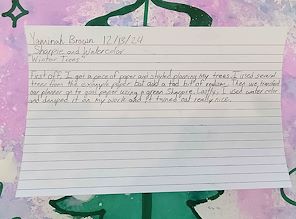 Yaminah Brown 12/13/24
Sharpie and Watercolor
"Winter Trees"
First off, I got a piece of paper and started planning my trees. I used several
trees from the example paper but add a tad bit of realism. Then we transfered
our planner on to good paper using a green Sharpie. Lastly, I used water color
and dumped it on my work and it turned out really nice.